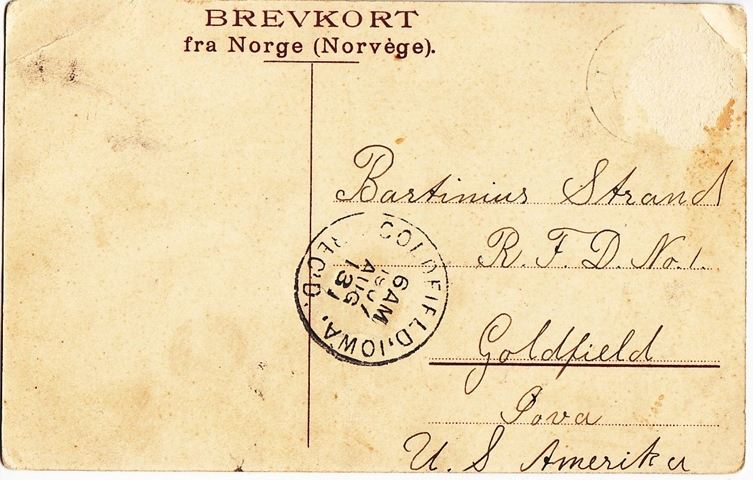 BREVKORT
fra Norge (Norvège).
Bartinius Strand
R. F. D. No. 1.
Goldfield
Iova
U. S Amerika
GOLDFIELD, IOWA.
REC'D.
6 AM
1907
AUG
13